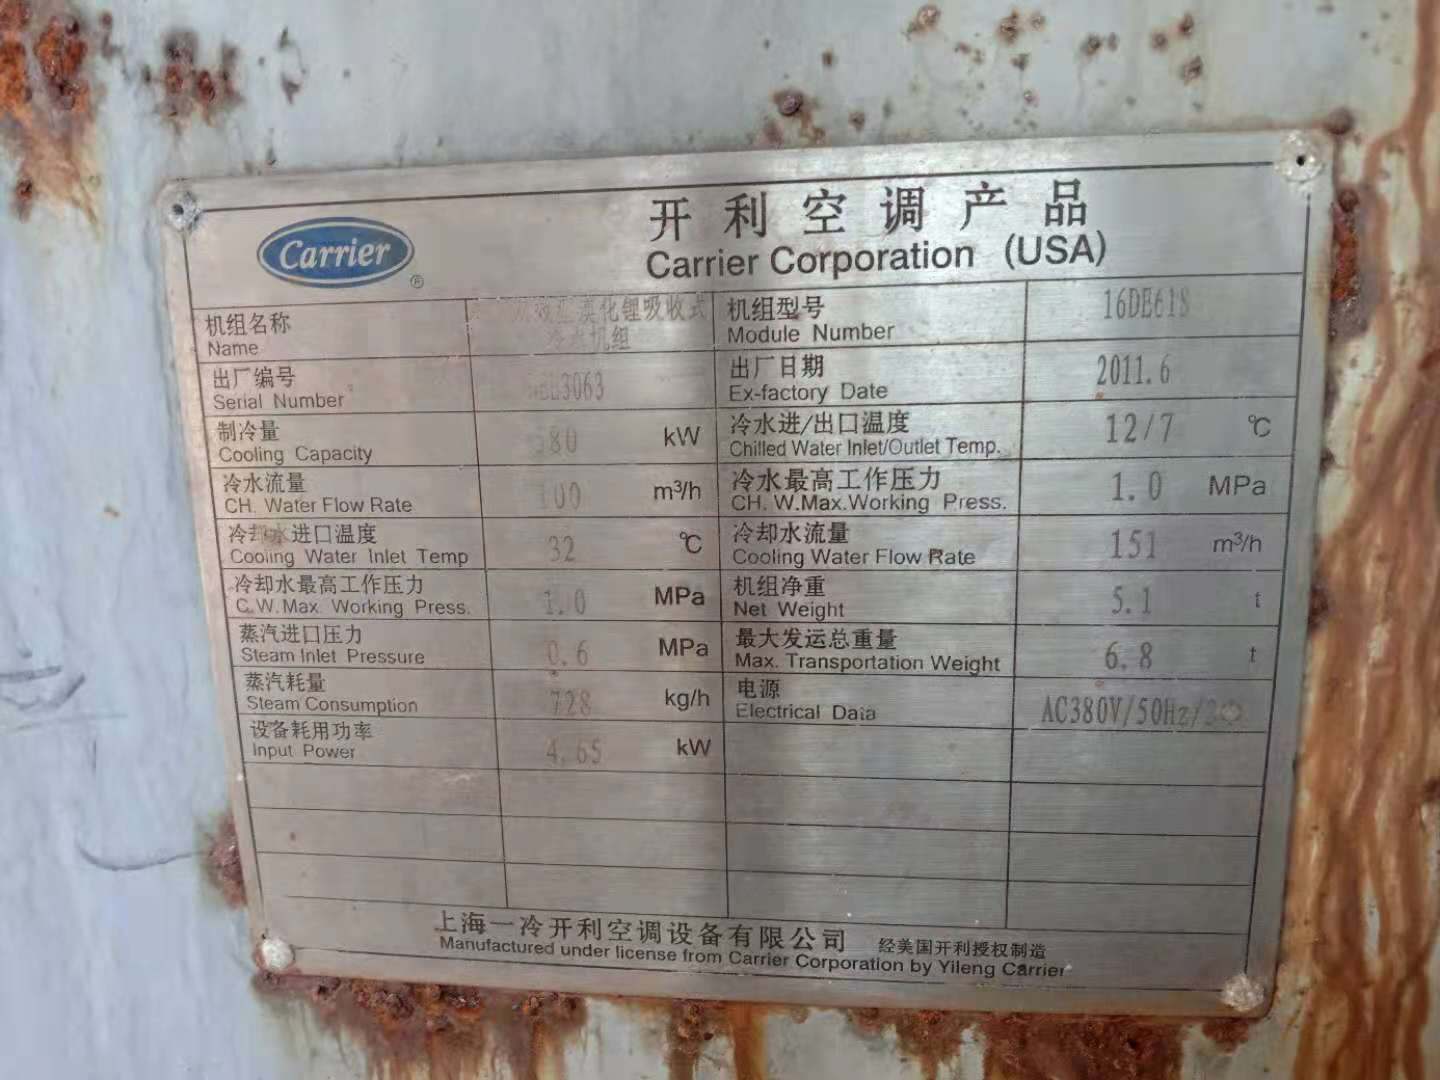 Carrier ®
开利空调产品
Carrier Corporation (USA)
机组名称 溴化锂吸收式 机组型号
Name 冷水机组 Module Number
出厂编号 3063 出厂日期 2011.6
Serial Number Ex-factory Date
制冷量 kW 冷水进/出口温度 12/7 ℃
Cooling Capacity Chilled Water Inlet/Outlet Temp.
冷水流量 100 m³/h 冷水最高工作压力 1.0 MPa
CH. Water Flow Rate CH. W.Max.Working Press.
冷却水进口温度 32 ℃ 冷却水流量 151 m³/h
Cooling Water Inlet Temp Cooling Water Flow Rate
冷却水最高工作压力 1.0 MPa 机组净重 5.1 t
C.W.Max. Working Press. Net Weight
蒸汽进口压力 0.6 MPa 最大发运总重量 6.8 t
Steam Inlet Pressure Max. Transportation Weight
蒸汽耗量 728 kg/h 电源 AC380V/50Hz/
Steam Consumption Electrical Data
设备耗用功率 4.65 kW
Input Power
上海一冷开利空调设备有限公司 经美国开利授权制造
Manufactured under license from Carrier Corporation by Yileng Carrier